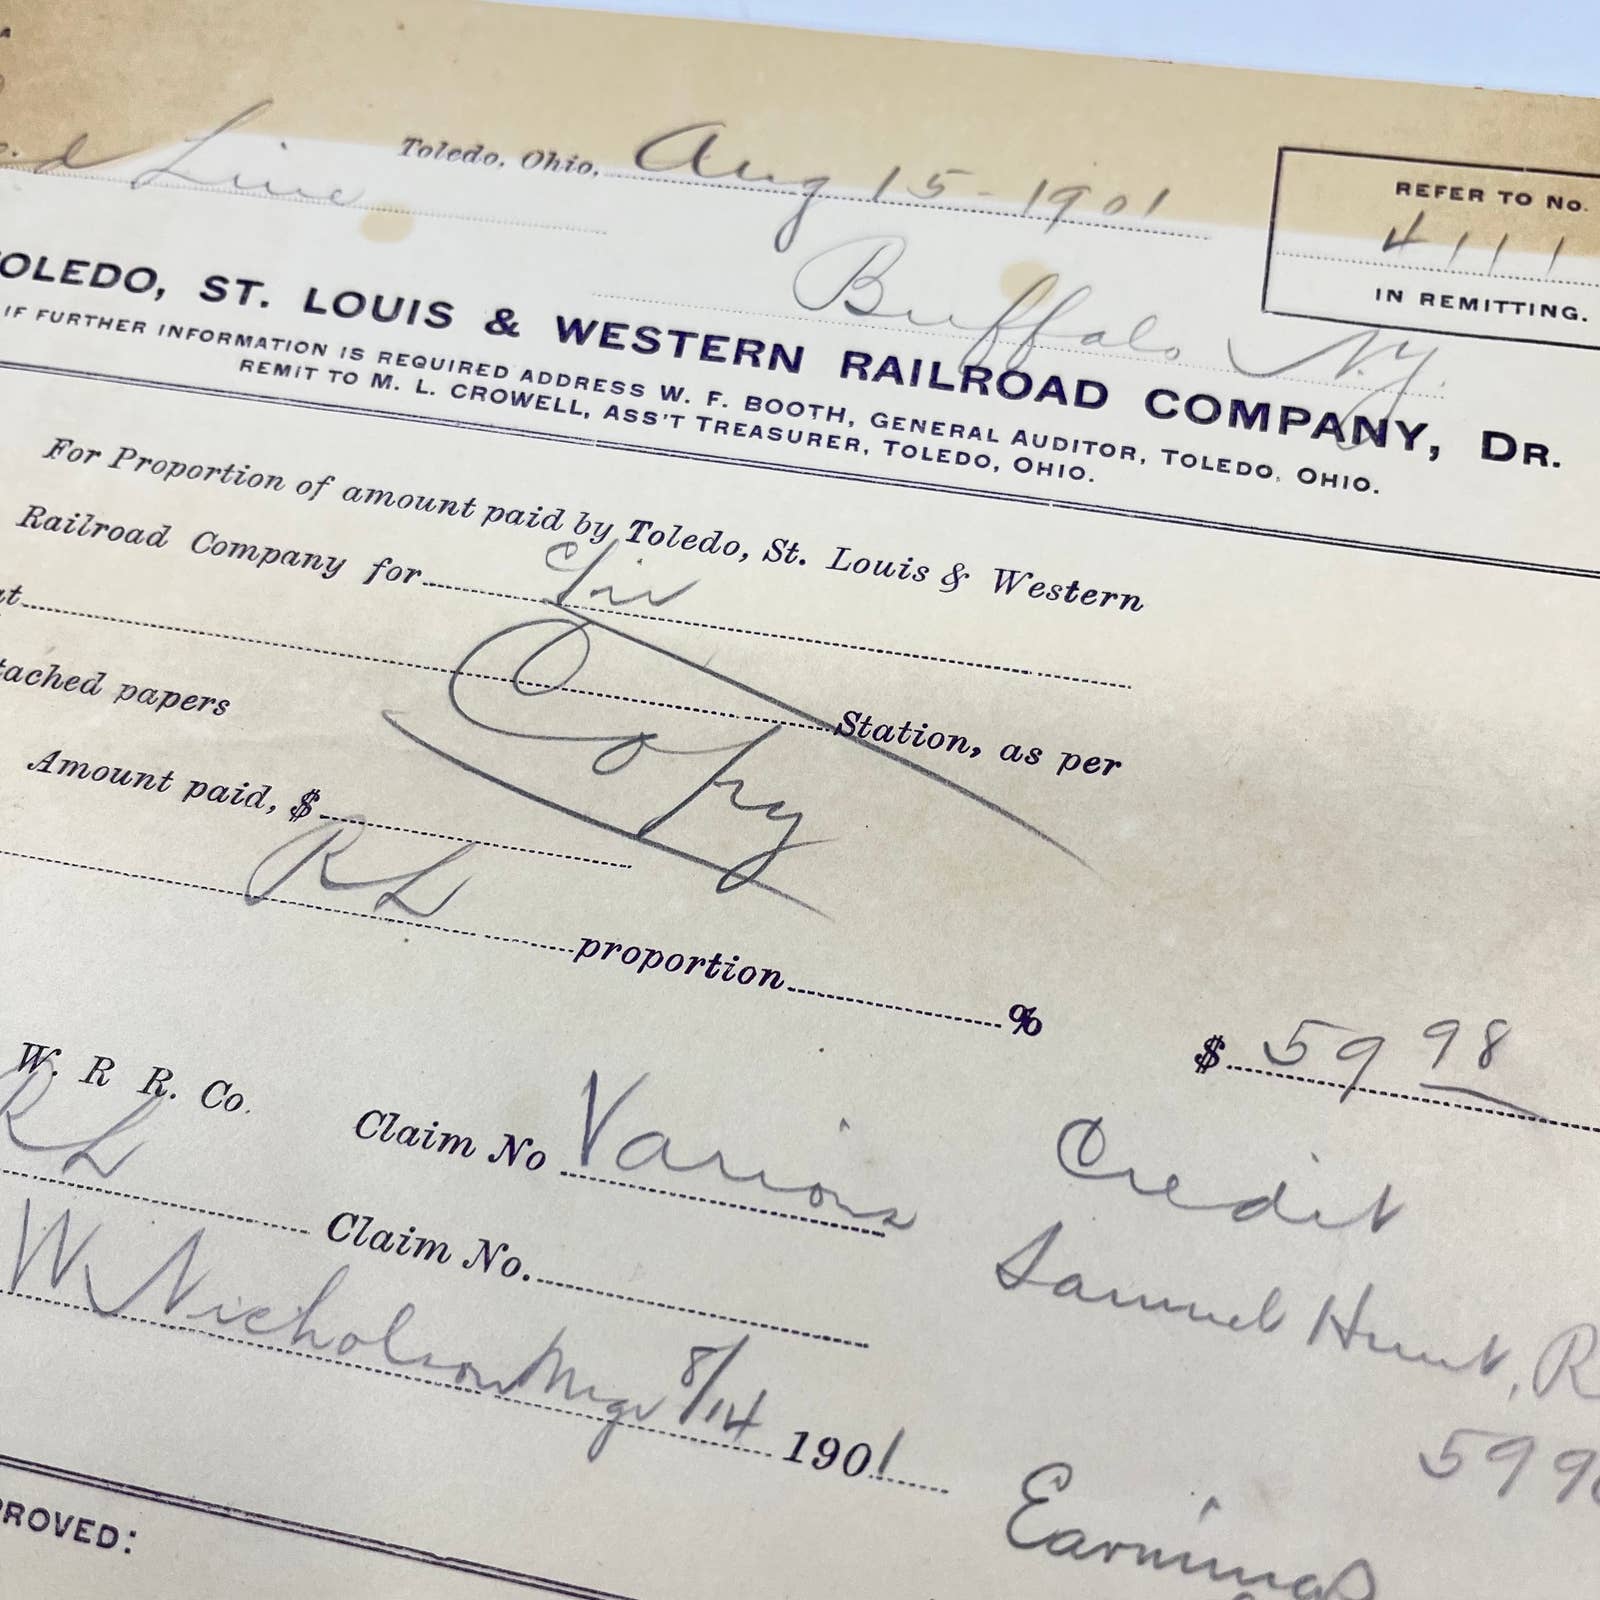 Line Toledo, Ohio, Aug 15-1901
REFER TO No.
4111
IN REMITTING.
Buffalo N.Y.
TOLEDO, ST. LOUIS & WESTERN RAILROAD COMPANY, DR.
IF FURTHER INFORMATION IS REQUIRED ADDRESS W. F. BOOTH, GENERAL AUDITOR, TOLEDO, OHIO.
REMIT TO M. L. CROWELL, ASS'T TREASURER, TOLEDO, OHIO.
For Proportion of amount paid by Toledo, St. Louis & Western
Railroad Company for
Station, as per
Copy
tached papers
Amount paid, $
RL proportion %
$ 59 98
W. R R. Co. Claim No Various
Credit
RL Claim No.
Samuel Hunt, R
W Nicholson Mgr 8/14 1901
599
Earnings
PROVED: